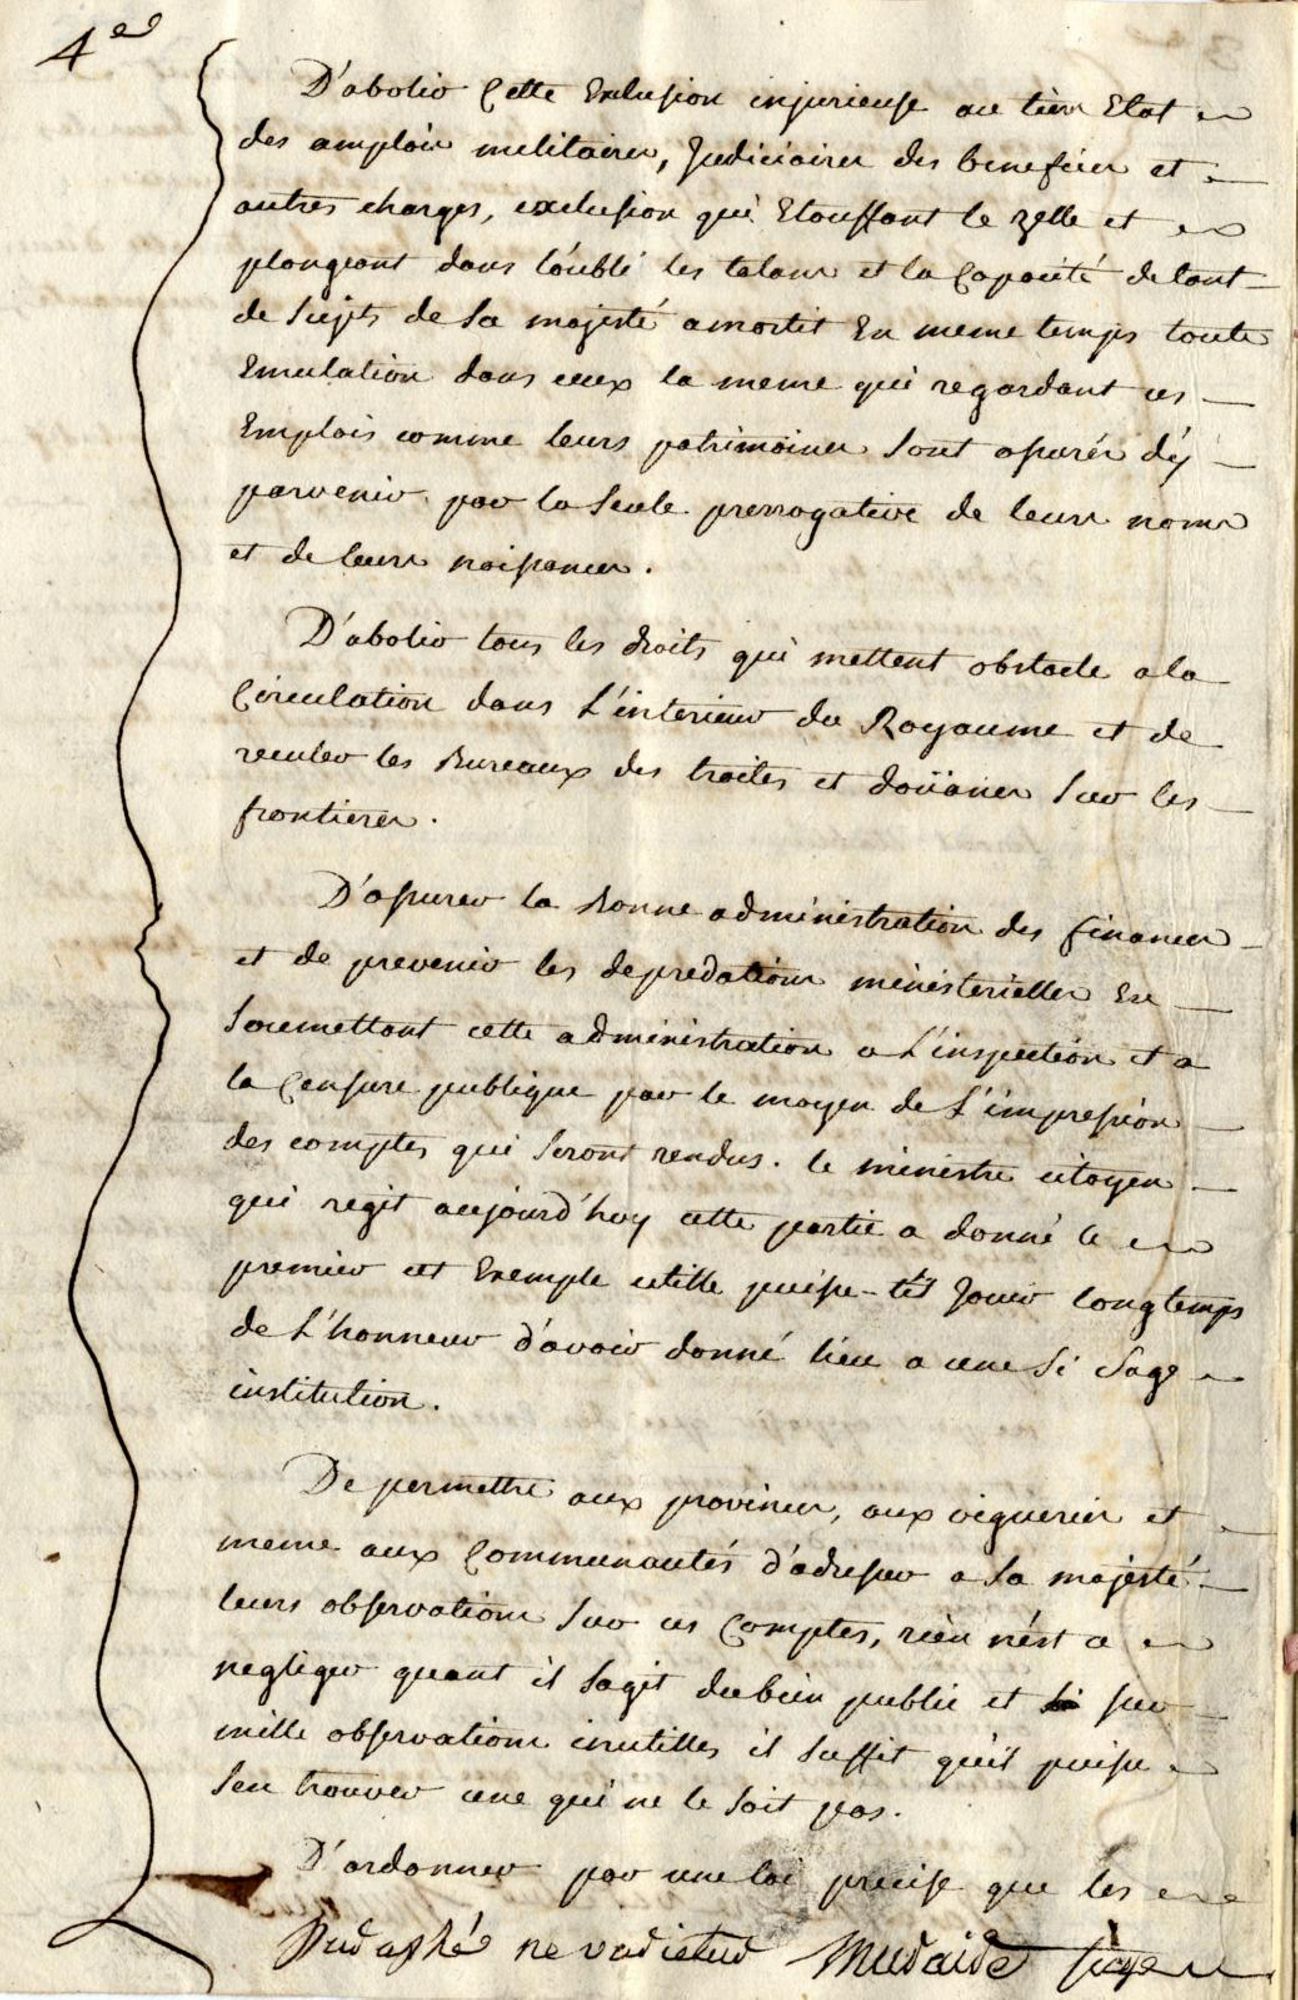 4e
D'abolir Cette Exclusion injurieuse au tiers Etat
des amplois militaires, Judiciaires des benefices et
autres charges, exclusion qui Etouffant le zelle et
plongeant dans l'oubli les talans et la Capacité de tant
de Sujets de Sa majesté amortit En meme temps toute
Emulation dans ceux la meme qui regardant ces
Emplois comme leurs patrimoines sont assurés d'ÿ
parvenir par la Seule prerrogative de leurs noms
et de leurs naissances.
D'abolir tous les droits qui mettent obstacle a la
Circulation dans L'interieur du Royaume et de
reculer les Bureaux des traites et doüanes Sur les
frontieres.
D'assurer la Bonne administration des finances
et de prevenir les depredations ministerielles En
Soumettant cette administration a L'inspection et a
la Censure publique par le moyen de L'impression
des comptes qui Seront rendus. le ministre citoyen
qui regit aujourd'huy cette partie a donné le
premier cet Exemple utille puisse-t'il Jouir longtemps
de L'honneur d'avoir donné lieu a une Si Sage
institution.
De permettre aux provinces, aux vigueries et
meme aux Communautés d'adresser a Sa majesté
leurs observations Sur ces Comptes, rien n'est a
negliger quant il Sagit du bien public et sur
mille observations inutilles il Suffit qu'il puisse
Sen trouver une qui ne le Soit pas.
D'ordonner par une loi precise que les
ne varietur